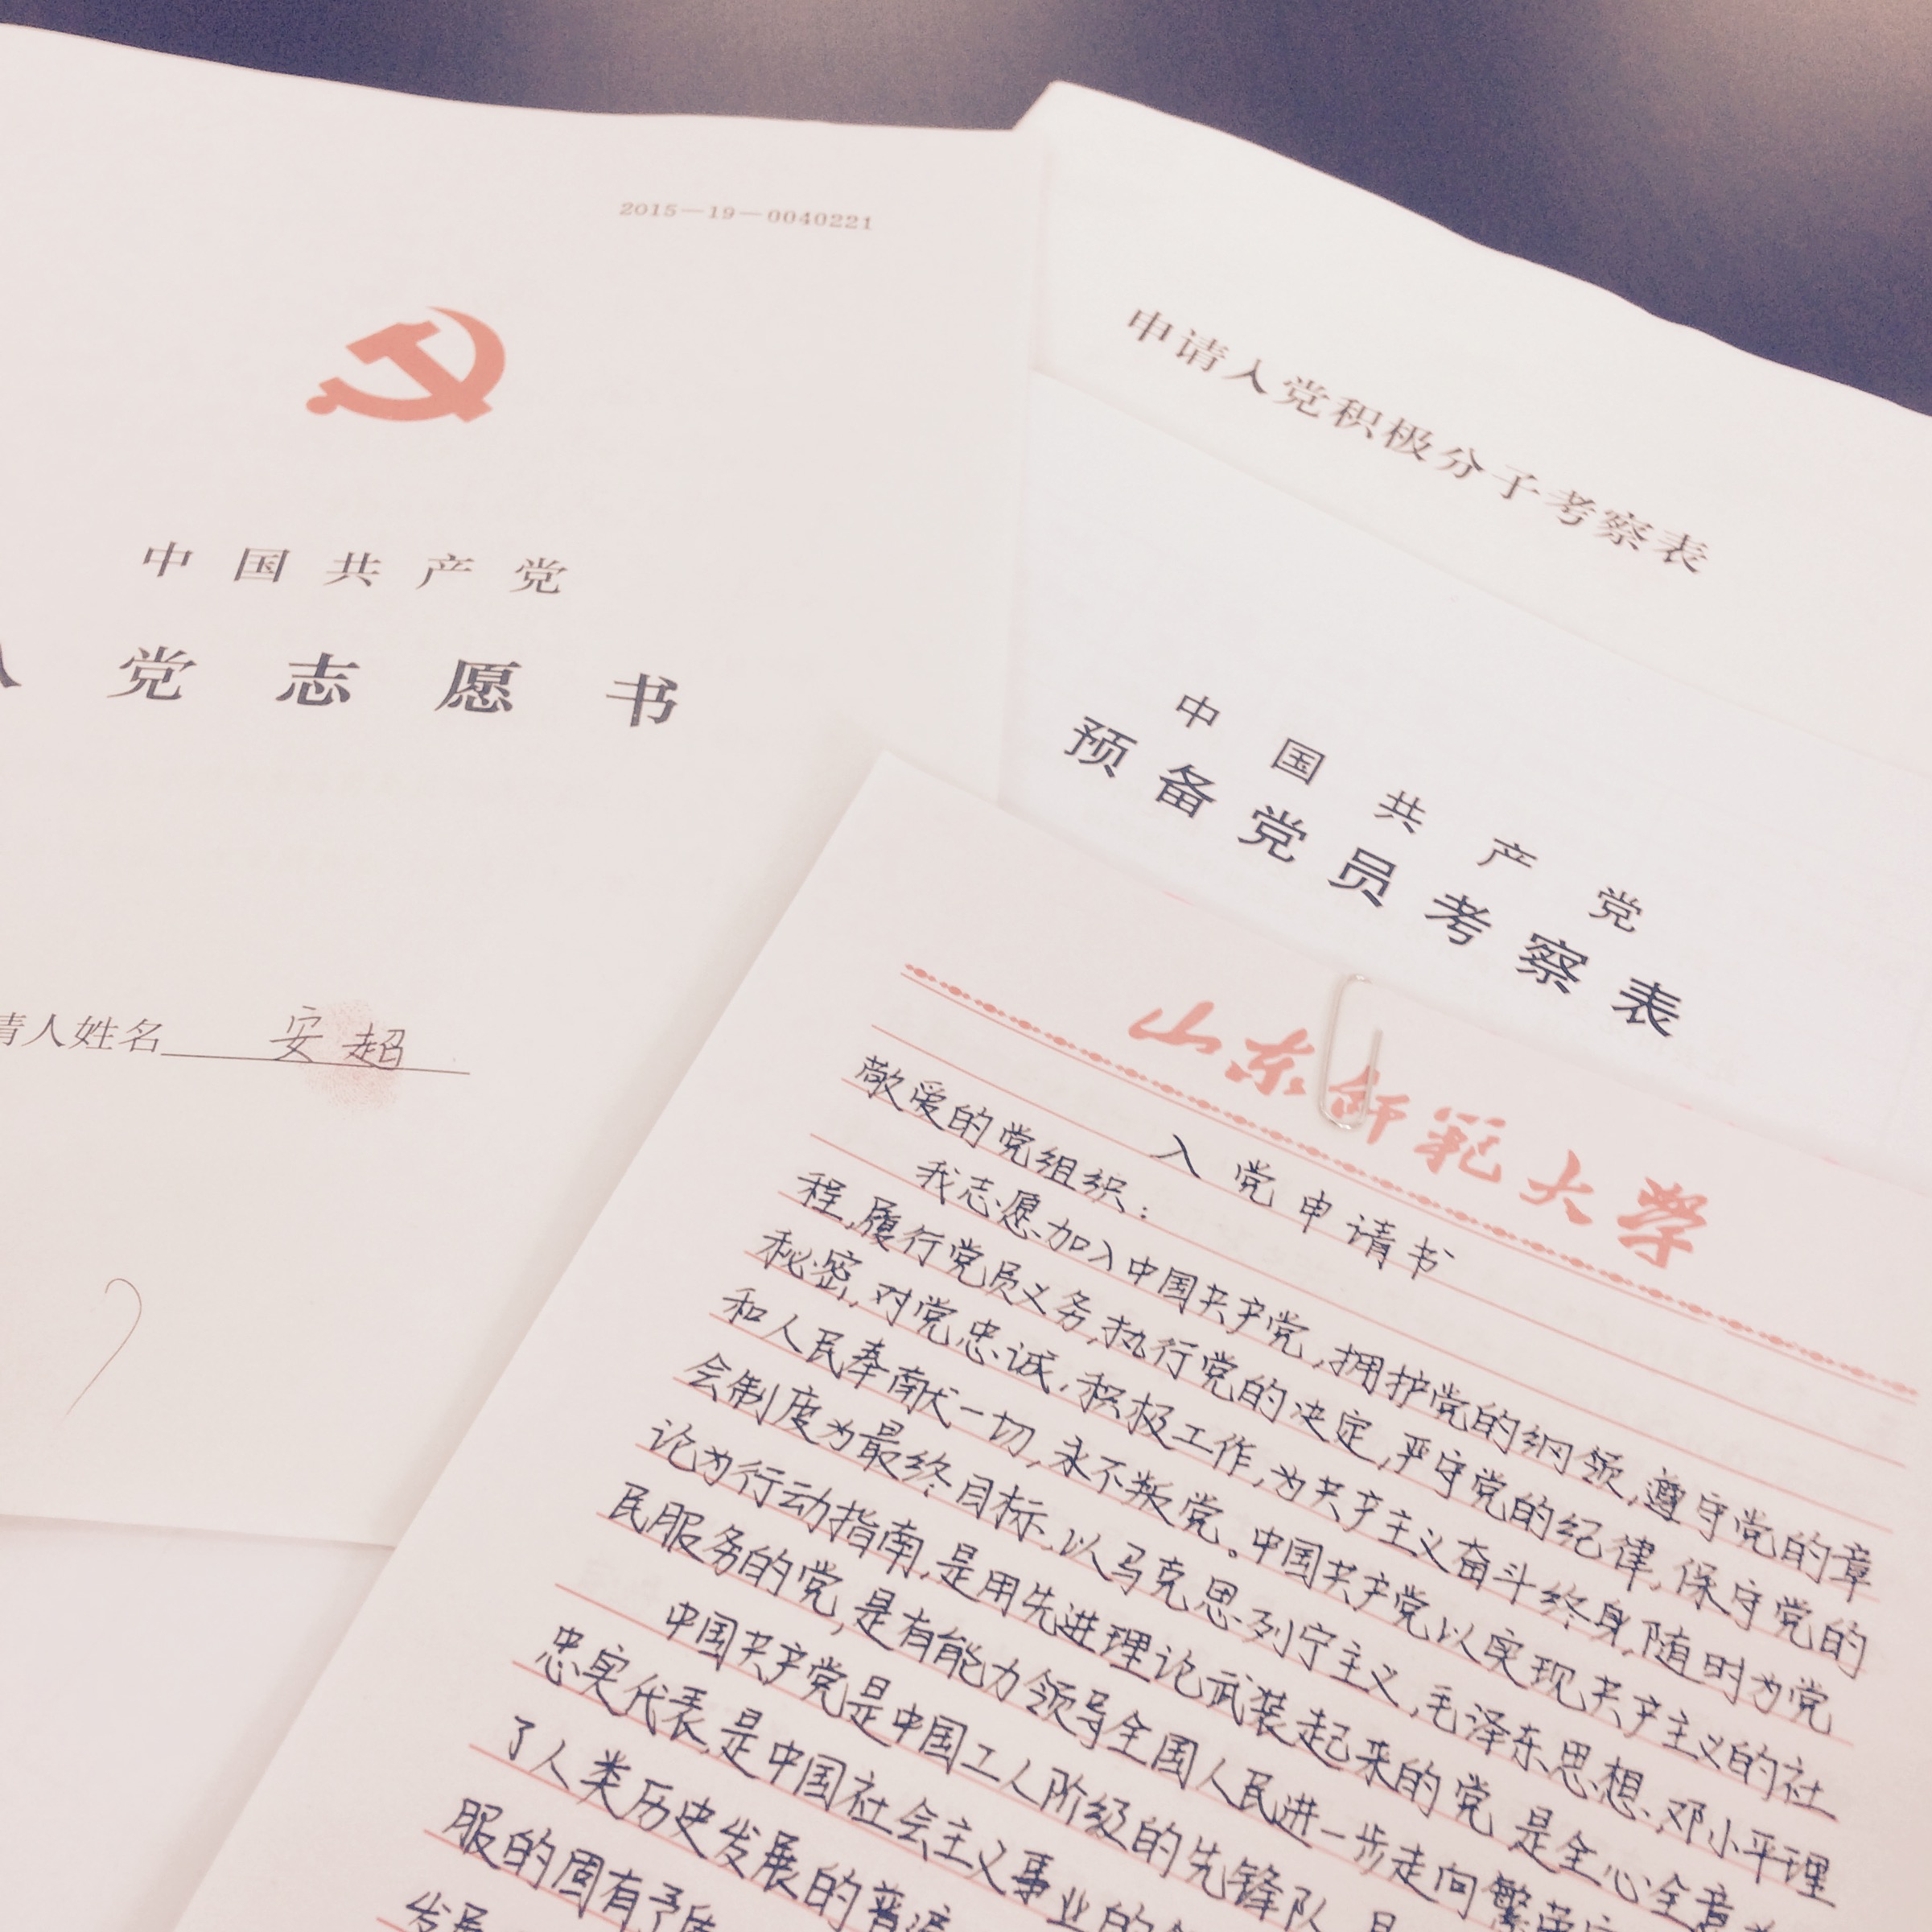 2015—19—0040221
中国共产党
入党志愿书
请人姓名 安超
申请入党积极分子考察表
中国共产党
预备党员考察表
山东师范大学
入党申请书
敬爱的党组织：
我志愿加入中国共产党，拥护党的纲领，遵守党的章
程，履行党员义务，执行党的决定，严守党的纪律，保守党的
秘密，对党忠诚，积极工作，为共产主义奋斗终身，随时为党
和人民奉献一切，永不叛党。中国共产党以实现共产主义的社
会制度为最终目标，以马克思列宁主义、毛泽东思想、邓小平理
论为行动指南，是用先进理论武装起来的党，是全心全意为
民服务的党，是有能力领导全国人民进一步走向繁荣
中国共产党是中国工人阶级的先锋队，是
忠实代表，是中国社会主义事业的
了人类历史发展的普遍
服的固有矛盾
发展